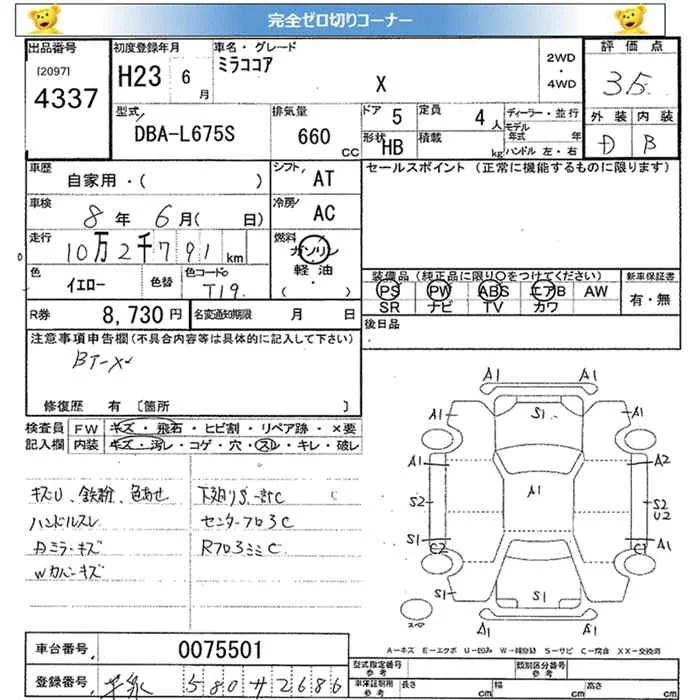 完全ゼロ切りコーナー
出品番号 初度登録年月 車名・グレード 評価点
[2097] 4337 H23 6月 ミラココア X 2WD・4WD 3.5
型式 DBA-L675S 排気量 660 CC ドア 5 定員 4人 ディーラー・並行 外装 内装
形状 HB 積載 kg モデル年式 年 ハンドル 左・右 D B
車歴 自家用・( ) シフト AT セールスポイント (正常に機能するものに限ります)
車検 8年 6月( 日) 冷房 AC
走行 10万2千791 km 燃料 ガソリン 軽油 ( )
色 イエロー 色替 色コードNo T19 装備品(純正品に限り○をつけてください) 新車保証書
PS PW ABS エアB AW 有・無
SR ナビ TV カワ
R券 8,730円 名変通知期限 月 日 後日品
注意事項申告欄(不具合内容等は具体的に記入して下さい)
修復歴 有 〔箇所 〕
検査員記入欄 FW キズ・飛石・ヒビ割・リペア跡・×要
内装 キズ・汚レ・コゲ・穴・スレ・キレ・破レ
キズU、鉄粉、色あせ
ハンドルスレ
Dミラーキズ
Wカバーキズ
下廻りS.一部C
センターフロ3C
Rフロ3ミミC
A1 A1
A1 S1 A1
A1 A1 A2
S2 S2 U2
S1 C2 C2 A1
S1 S1 S1
スペア A1 A1
A－キズ E－エクボ U－凹み W－補修跡 S－サビ C－腐食 XX－交換済
車台番号 0075501
登録番号 580 サ 2686
型式指定番号 参考 類別区分番号 参考
車体証明用 参考 長さ cm 幅 cm 高さ cm